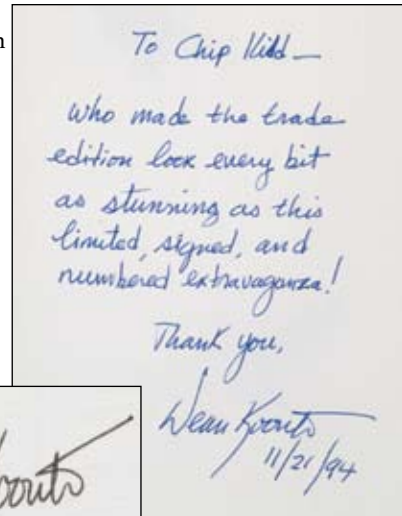 To Chip Kidd—
who made the trade
edition look every bit
as stunning as this
limited, signed, and
numbered extravaganza!
Thank you,
Dean Koontz
11/21/94